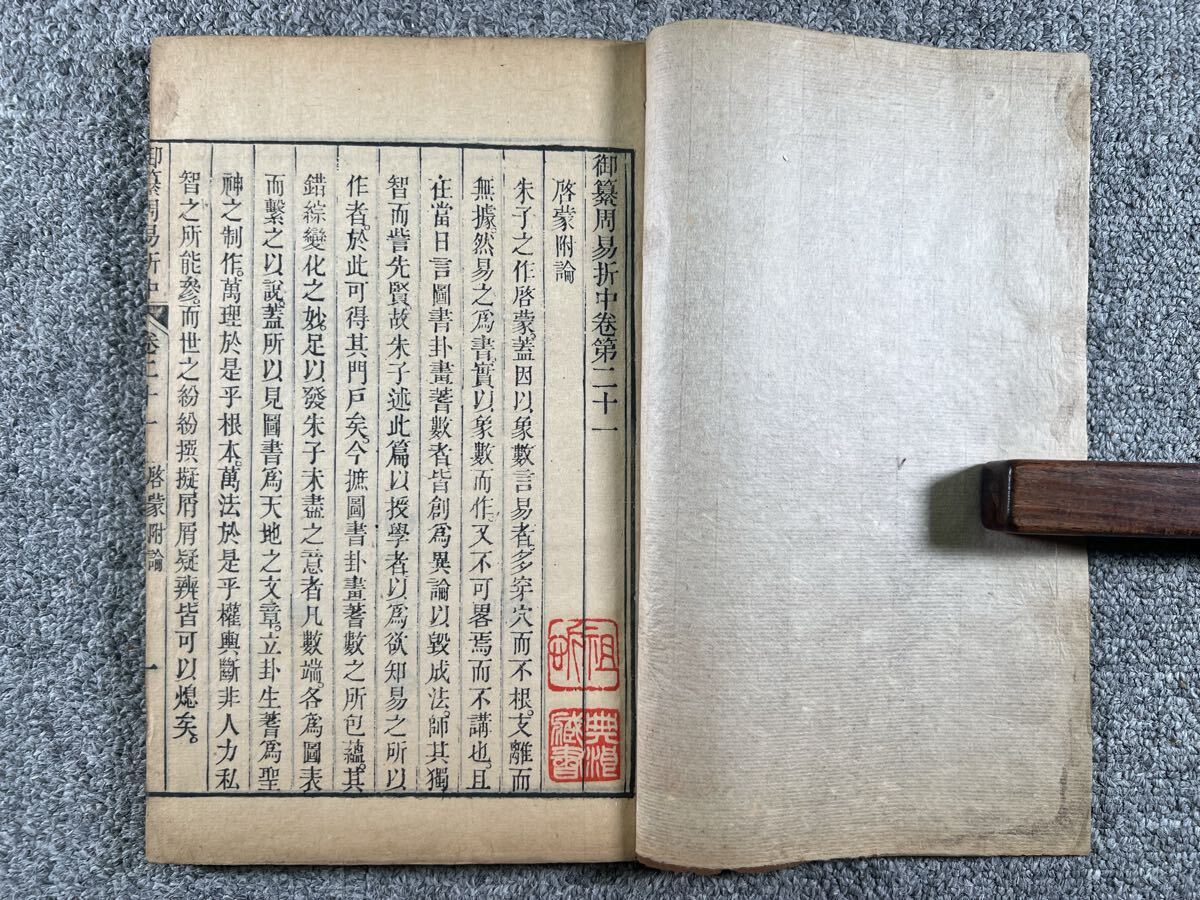 御纂周易折中卷第二十一
啓蒙附論
朱子之作啓蒙。蓋因以象數言易者。多穿穴而不根。支離而
無據。然易之爲書。實以象數而作。又不可畧焉而不講也。且
在當日言圖書卦畫蓍數者。皆創爲異論以毀成法。師其獨
智而訾先賢。故朱子述此篇以授學者。以爲欲知易之所以
作者。於此可得其門戸矣。今摭圖書卦畫蓍數之所包蘊。其
錯綜變化之妙。足以發朱子未盡之意者凡數端。各爲圖表
而繫之以說。蓋所以見圖書爲天地之文章。立卦生蓍爲聖
神之制作。萬理於是乎根本。萬法於是乎權輿。斷非人力私
智之所能參。而世之紛紛撰擬屑屑疑辨皆可以熄矣。
御纂周易折中 卷二十一 啓蒙附論 一
典
藏書